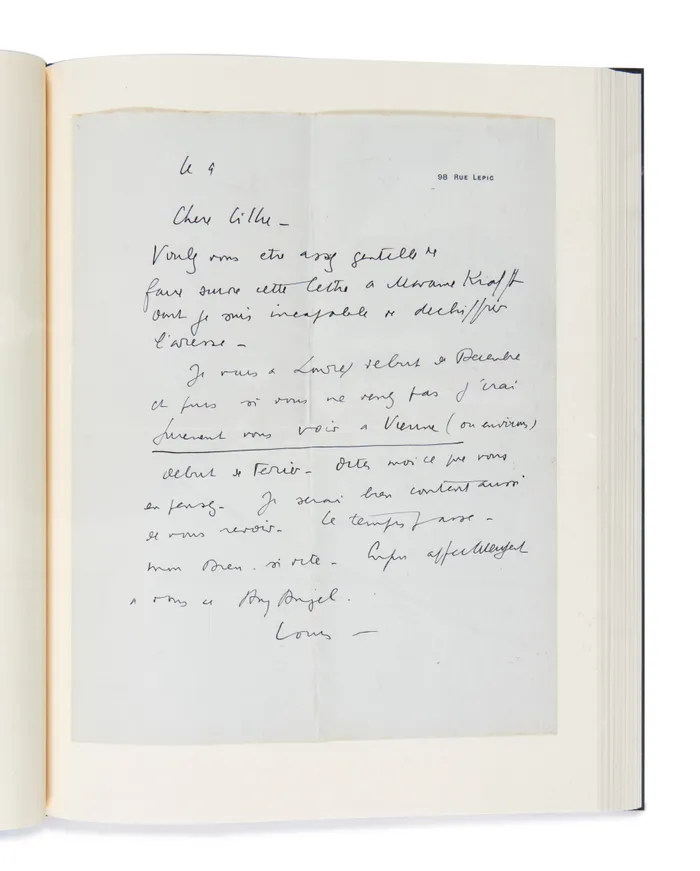 le 9
98 RUE LEPIC
Chere Cillie -
Voulez vous etre assez gentille de
faire suivre cette lettre a Madame Krafft
dont je suis incapable de dechiffrer
l'adresse -
Je vais a Londres debut de Decembre
et puis si vous ne venez pas j'irai
surement vous voir a Vienne (ou environs)
debut de Fevrier - dites moi ce que vous
en pensez - Je serai bien content aussi
de vous revoir - Le temps passe -
mon Dieu . si vite - Enfin affectueusement
a vous et
Louis -